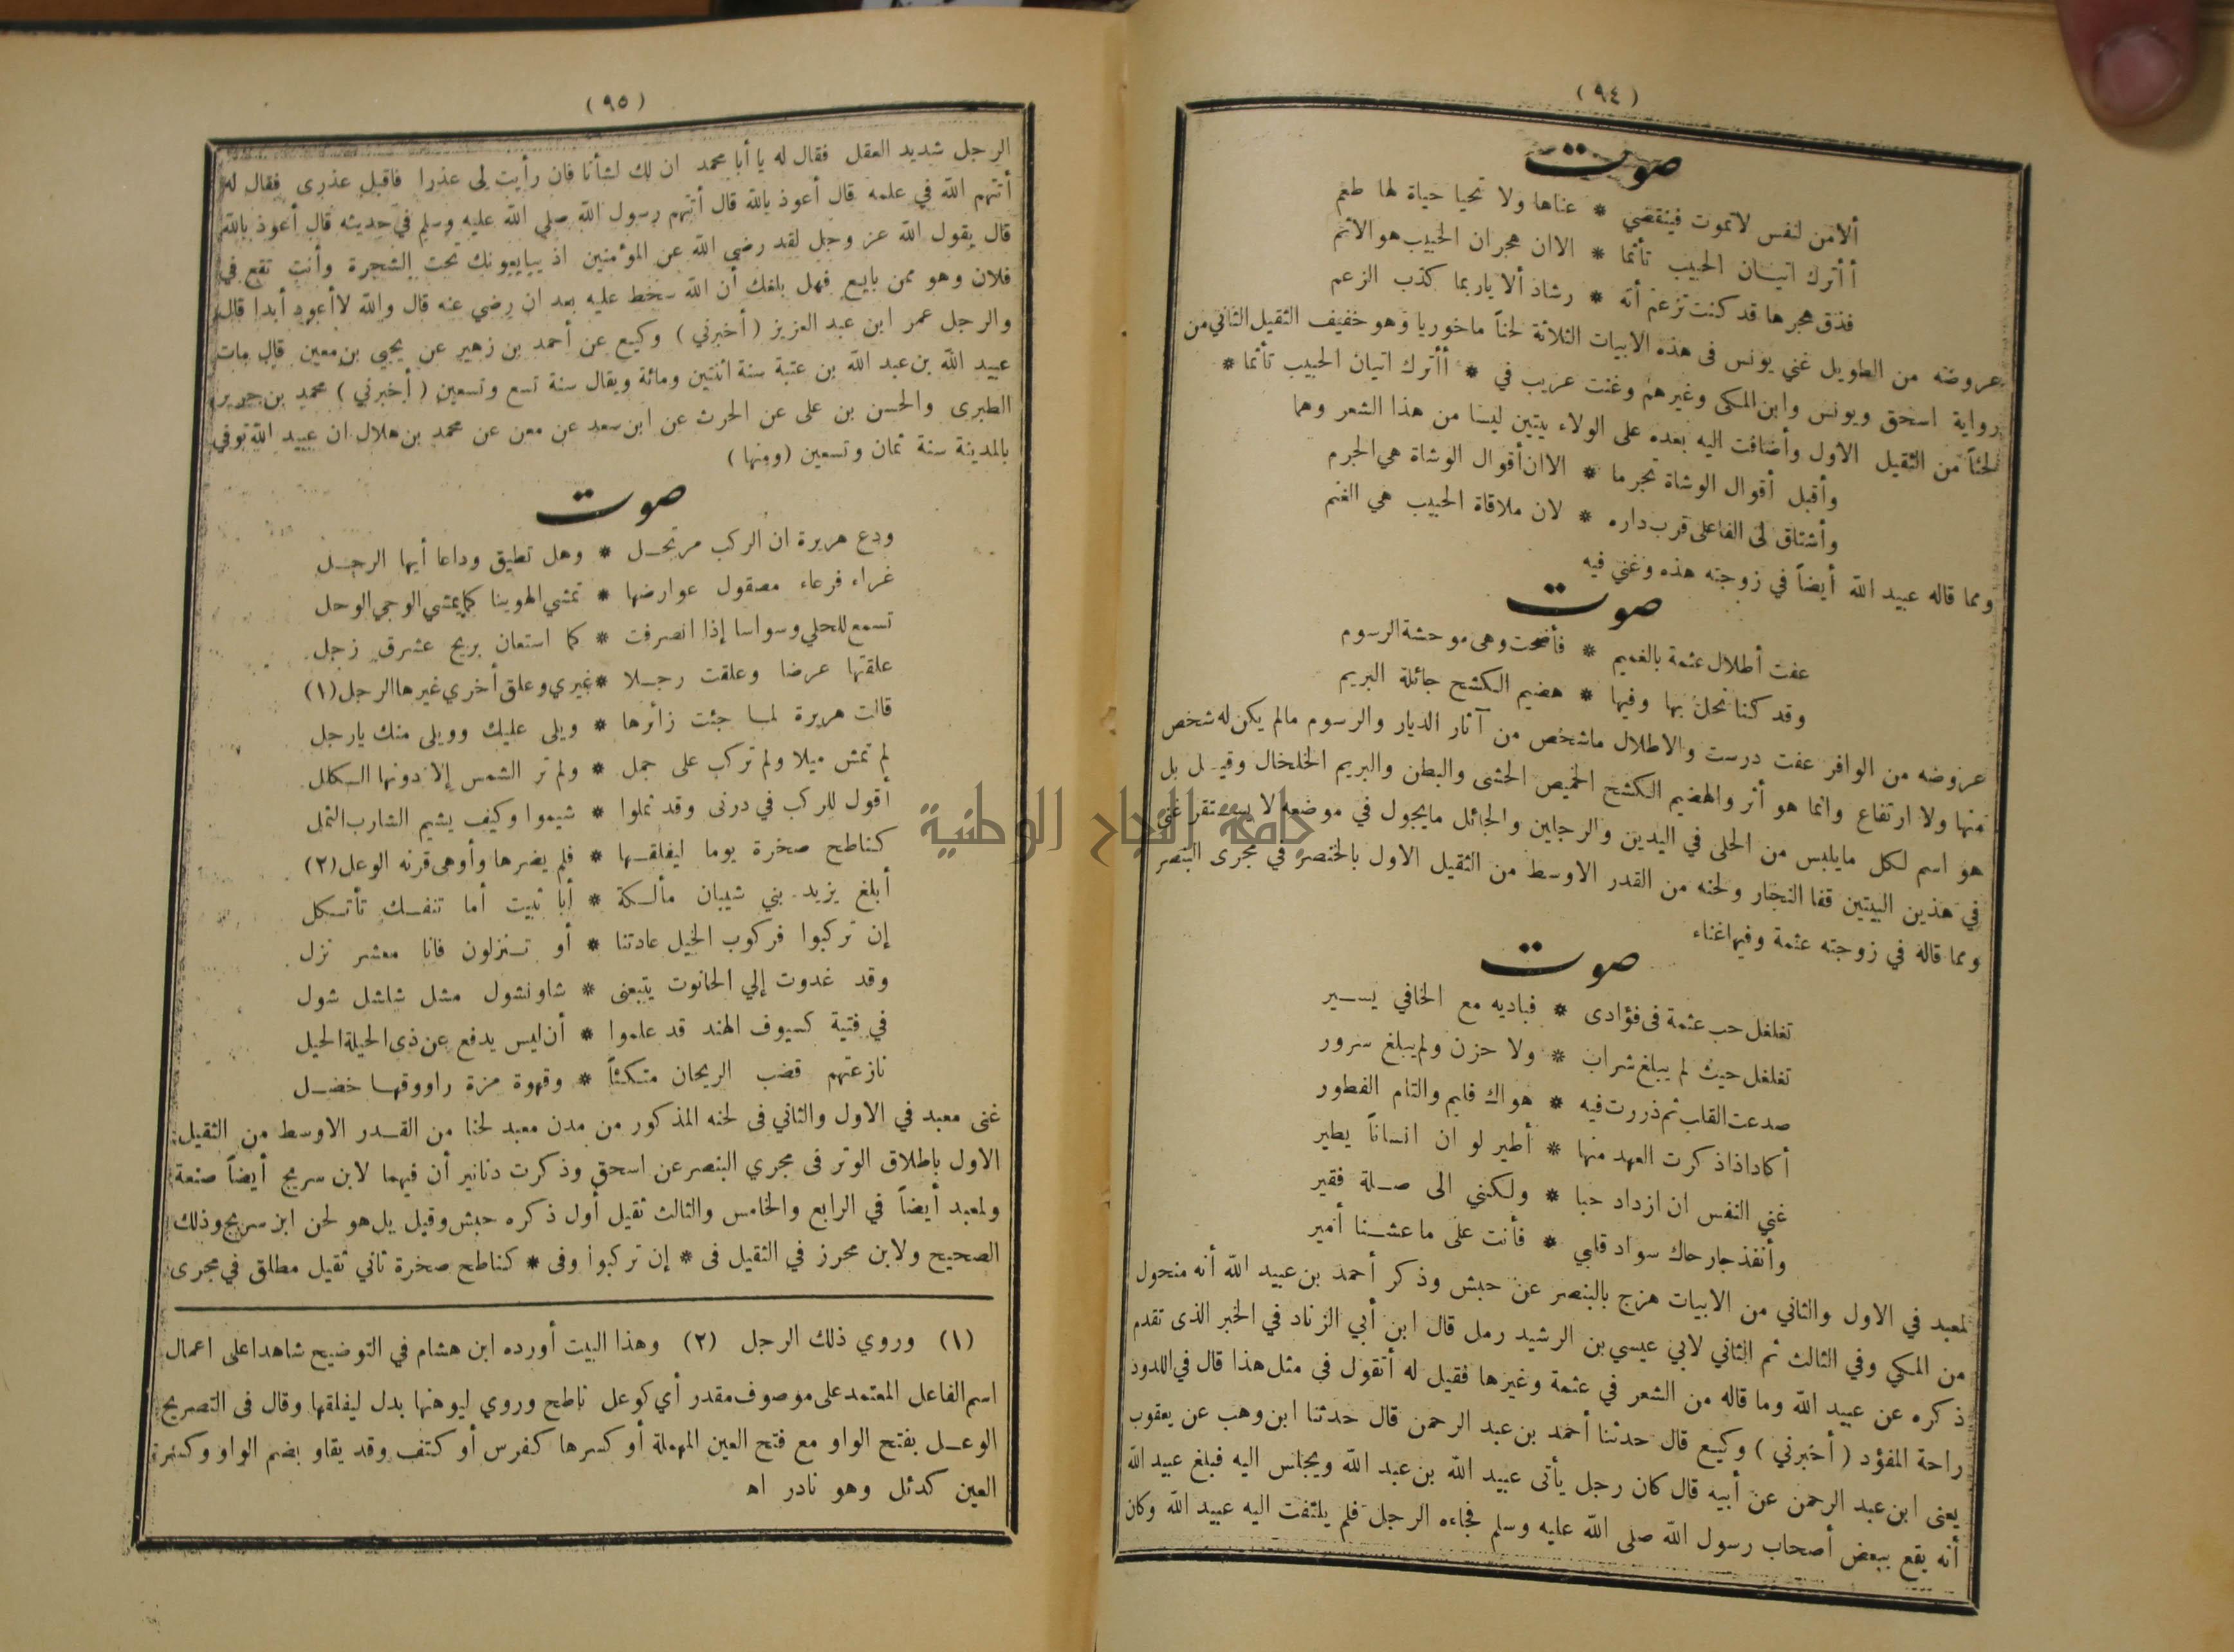 (٩٤)
صوت
ألامن لنفس لاتموت فينقضي * عناها ولا تحيا حياة لها طعم
أأترك اتيان الحبيب تأثما * الاان هجران الحبيب هو الاثم
فذق هجرها قد كنت تزعم أنه * رشاد ألا ياربما كذب الزعم
عروضه من الطويل غني يونس فى هذه الابيات الثلاثة لحناً ماخوريا وهو خفيف الثقيل الثاني من
رواية اسحق ويونس وابن المكى وغيرهم وغنت عريب في * أأترك اتيان الحبيب تأثما *
لحناً من الثقيل الاول وأضافت اليه بعده على الولاء بيتين ليسا من هذا الشعر وهما
وأقبل أقوال الوشاة تجرما * الاان أقوال الوشاة هي الجرم
وأشتاق لى الفاعلى قرب داره * لان ملاقاة الحبيب هي الغنم
ومما قاله عبيد الله أيضاً في زوجته هذه وغني فيه
صوت
عفت أطلال عثمة بالغميم * فأضحت وهى موحشة الرسوم
وقد كنا نحل بها وفيها * هضيم الكشح جائلة البريم
عروضه من الوافر عفت درست والاطلال ماشخص من آثار الديار والرسوم مالم يكن له شخص
منها ولا ارتفاع وانما هو أثر والهضيم الكشح الخميص الحشى والبطن والبريم الخلخال وقيل بل
هو اسم لكل مايلبس من الحلى في اليدين والرجلين والجائل مايجول في موضعه لا يستقر غنى
في هذين البيتين قفا النجار ولحنه من القدر الاوسط من الثقيل الاول بالخنصر في مجرى البنصر
ومما قاله في زوجته عثمة وفيها غناء
صوت
تغلغل حب عثمة فى فؤادى * فباديه مع الخافي يسير
تغلغل حيث لم يبلغ شراب * ولا حزن ولم يبلغ سرور
صدعت القلب ثم ذررت فيه * هواك فليم والتام الفطور
أكاد اذا ذكرت العهد منها * أطير لو ان انساناً يطير
غني النفس ان ازداد حبا * ولكنني الى صلة فقير
وأنفذ جارحاك سواد قلبي * فأنت على ما عشنا أمير
لمعبد في الاول والثاني من الابيات هزج بالبنصر عن حبش وذكر أحمد بن عبيد الله أنه منحول
من المكي وفي الثالث ثم الثاني لابي عيسي بن الرشيد رمل قال ابن أبي الزناد في الخبر الذى تقدم
ذكره عن عبيد الله وما قاله من الشعر في عثمة وغيرها فقيل له أتقول في مثل هذا قال في اللدود
راحة المفؤد ( أخبرني ) وكيع قال حدثنا أحمد بن عبد الرحمن قال حدثنا ابن وهب عن يعقوب
يعنى ابن عبد الرحمن عن أبيه قال كان رجل يأتى عبيد الله بن عبد الله ويجلس اليه فبلغ عبيد الله
أنه يقع ببعض أصحاب رسول الله صلى الله عليه وسلم فجاءه الرجل فلم يلتفت اليه عبيد الله وكان
(٩٥)
الرجل شديد العقل فقال له يا أبا محمد ان لك لشأنا فان رأيت لى عذرا فاقبل عذرى فقال له
أتتهم الله في علمه قال أعوذ بالله قال أتتهم رسول الله صلي الله عليه وسلم في حديثه قال أعوذ بالله
قال يقول الله عز وجل لقد رضي الله عن المؤمنين اذ يبايعونك تحت الشجرة وأنت تقع في
فلان وهو ممن بايع فهل بلغك أن الله سخط عليه بعد ان رضي عنه قال والله لا أعود أبدا قال
والرجل عمر ابن عبد العزيز ( أخبرني ) وكيع عن أحمد بن زهير عن يحيي بن معين قال مات
عبيد الله بن عبد الله بن عتبة سنة اثنتين ومائة ويقال سنة تسع وتسعين ( أخبرني ) محمد بن جرير
الطبرى والحسن بن على عن الحرث عن ابن سعد عن معن عن محمد بن هلال ان عبيد الله توفي
بالمدينة سنة ثمان وتسعين (ومنها)
صوت
ودع هريرة ان الركب مرتحل * وهل تطيق وداعا أيها الرجل
غراء فرعاء مصقول عوارضها * تمشي الهوينا كما يمشي الوجي الوحل
تسمع للحلي وسواسا إذا انصرفت * كما استعان بريح عشرق زجل
علقتها عرضا وعلقت رجلا * غيري وعلق أخري غيرها الرجل (١)
قالت هريرة لما جئت زائرها * ويلى عليك وويلى منك يارجل
لم تمش ميلا ولم تركب على جمل * ولم تر الشمس إلا دونها الكلل
أقول للركب في درنى وقد ثملوا * شيموا وكيف يشيم الشارب الثمل
كناطح صخرة يوما ليفلقها * فلم يضرها وأوهى قرنه الوعل (٢)
أبلغ يزيد بني شيبان مألكة * أبا ثبيت أما تنفك تأتكل
إن تركبوا فركوب الخيل عادتنا * أو تنزلون فانا معشر نزل
وقد غدوت إلي الحانوت يتبعنى * شاو نشول مشل شلشل شول
في فتية كسيوف الهند قد علموا * أن ليس يدفع عن ذى الحيلة الحيل
نازعتهم قضب الريحان متكئاً * وقهوة مزة راووقها خضل
غنى معبد في الاول والثاني فى لحنه المذكور من مدن معبد لحنا من القدر الاوسط من الثقيل
الاول باطلاق الوتر فى مجري البنصر عن اسحق وذكرت دنانير أن فيهما لابن سريج أيضاً صنعة
ولمعبد أيضاً في الرابع والخامس والثالث ثقيل أول ذكره حبش وقيل بل هو لحن ابن سريج وذلك
الصحيح ولابن محرز في الثقيل فى * إن تركبوا وفى * كناطح صخرة ثاني ثقيل مطلق في مجرى
(١) وروي ذلك الرجل (٢) وهذا البيت أورده ابن هشام في التوضيح شاهدا على اعمال
اسم الفاعل المعتمد على موصوف مقدر أي كوعل ناطح وروي ليوهنها بدل ليفلقها وقال فى التصريح
الوعل بفتح الواو مع فتح العين المهملة أو كسرها كفرس أو كتف وقد يقاو بضم الواو وكسر
العين كدئل وهو نادر اه
جامعة النجاح الوطنية